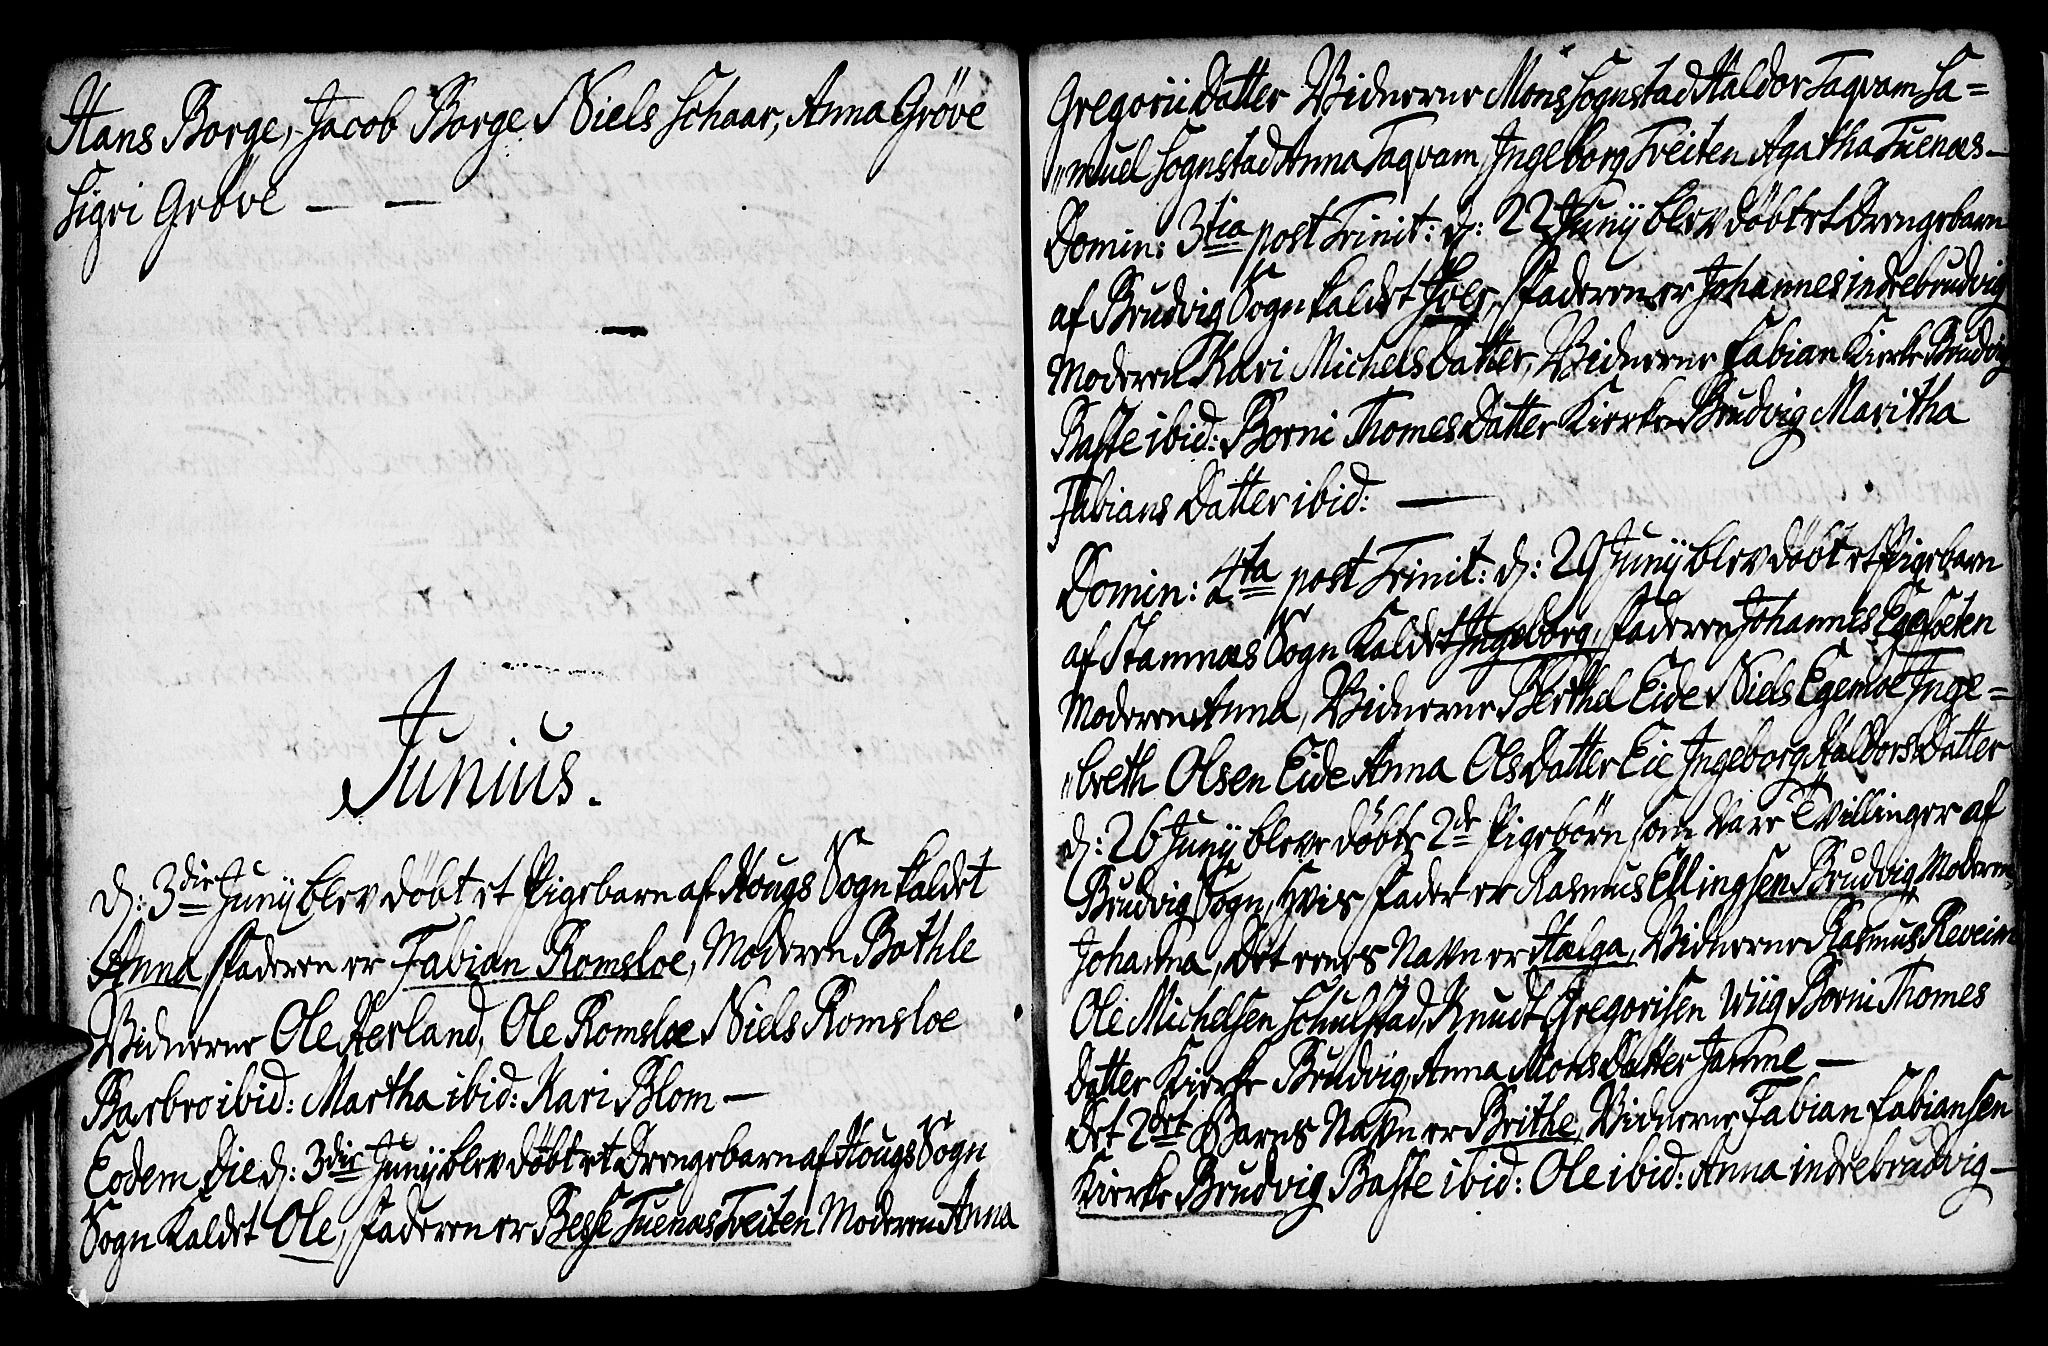 Hans Borge, Jacob Borge Niels Schaar, Anna Gröve
Sigri Gröve — —
Junius.
d: 3die Junij blev döbt et Pigebarn af Hougs Sogn kaldet
Anna, Faderen er Fabian Romsloe, Moderen Bothle
Vidnerne Ole Herland, Ole Romsloe Niels Romsloe
Barbro ibid: Martha ibid: Kari Blom —
Eodem die d: 3die Junij blev döbt et Drengebarn af Hougs Sogn
Sogn kaldet Ole, Faderen er Besse Tuenæs Tveiten Moderen Anna
Gregorii Datter Vidnerne Mons Sognstad Haldor Taqvam Sa=
"muel Sognstad Anna Taqvam, Ingeborg Tveiten Agatha Tuenæs —
Domin: 3tia post Trinit: d: 22 Junij blev döbt et Drengebarn
af Brudvig Sogn kaldet Joes, Faderen er Johannes indrebrudvig
Moderen Kari Michels Datter, Vidnerne Fabian Kierke Brudvig
Baste ibid: Borni Thomes Datter Kierke Brudvig Maritha
Fabians Datter ibid: —
Domin: 4ta post Trinit: d: 29 Junij blev döbt et Pigebarn
af Stamnæs Sogn kaldet Ingeborg, Faderen Johannes Egesoeten
Moderen Anna, Vidnerne Berthel Eide Niels Egemoe Inge=
"breth Olsen Eide Anna Olsdatter Eie Ingeborg Haldors Datter
d: 26 Junij bleve döbte 2de Pigebörn som vare Tvillinger af
Brudvig Sogn, hvis Fader er Rasmus Ellingsen Brudvig, Moderen
Johanna, det eenes Navn er Hælga, Vidnerne Rasmus Reveim
Ole Michelsen Schulstad, Knudt Gregorisen Wiig Borni Thomes
datter Kierke Brudvig, Anna Mons Datter Jamne —
det 2det Barns Navn er Brithe, Vidnerne Fabian Fabiansen
Kierke Brudvig Baste ibid: Ole ibid: Anna indrebrudvig —